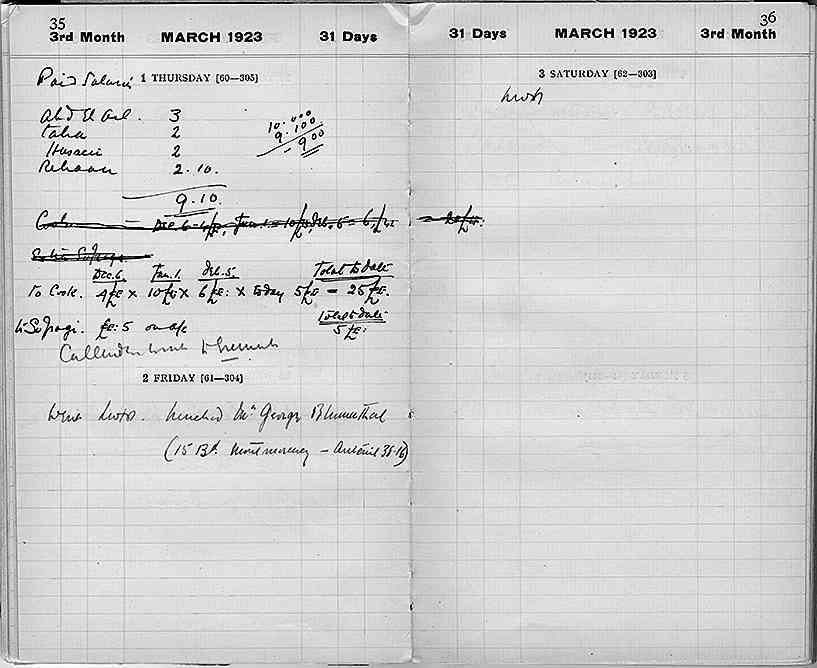 35
3rd Month MARCH 1923 31 Days
Paid Salaries 1 THURSDAY [60—305]
Abd El Aal. 3
Taha 2
Hussein 2
Rehaan 2.10.
9.10.
10.000
9.100
-900
Cook Dec. 6 = 4/£E, Jan. 1 = 10/£E, Feb. 5 = 6/£E = 20/£E.
Dec. 6. Jan. 1. Feb. 5. Total to date
To Cook. 4£E x 10£E x 6£E: x today 5£E = 25£E.
Total to date
to Sofragi. £E: 5 on a/c 5£E:
Callender went to
2 FRIDAY [61—304]
Went Luxor. lunched Mr George Blumenthal
(15 Bd. Montmorency — Auteuil 36-16)
36
31 Days MARCH 1923 3rd Month
3 SATURDAY [62—303]
Luxor